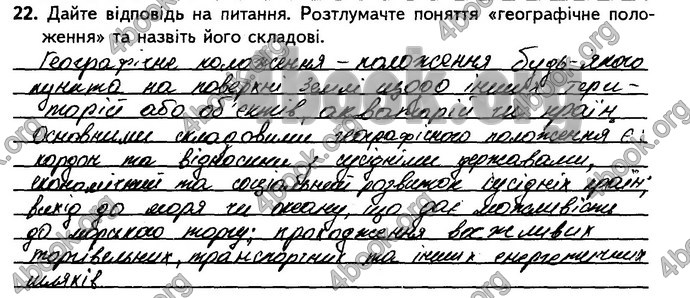 22. Дайте відповідь на питання. Розтлумачте поняття «географічне поло-
ження» та назвіть його складові.
Географічне положення – положення будь-якого
пункта на поверхні землі щодо інших тери-
торій або об'єктів, акваторій чи країн
Основними складовими географічного положення є:
кордон та відносини з сусідніми державами,
економічний та соціальний розвиток сусідніх країн;
вихід до моря чи океану, що дає можливість
до морського торгу; проходження важливих
торгівельних, транспортних та інших енергетичних
шляхів
4book.org